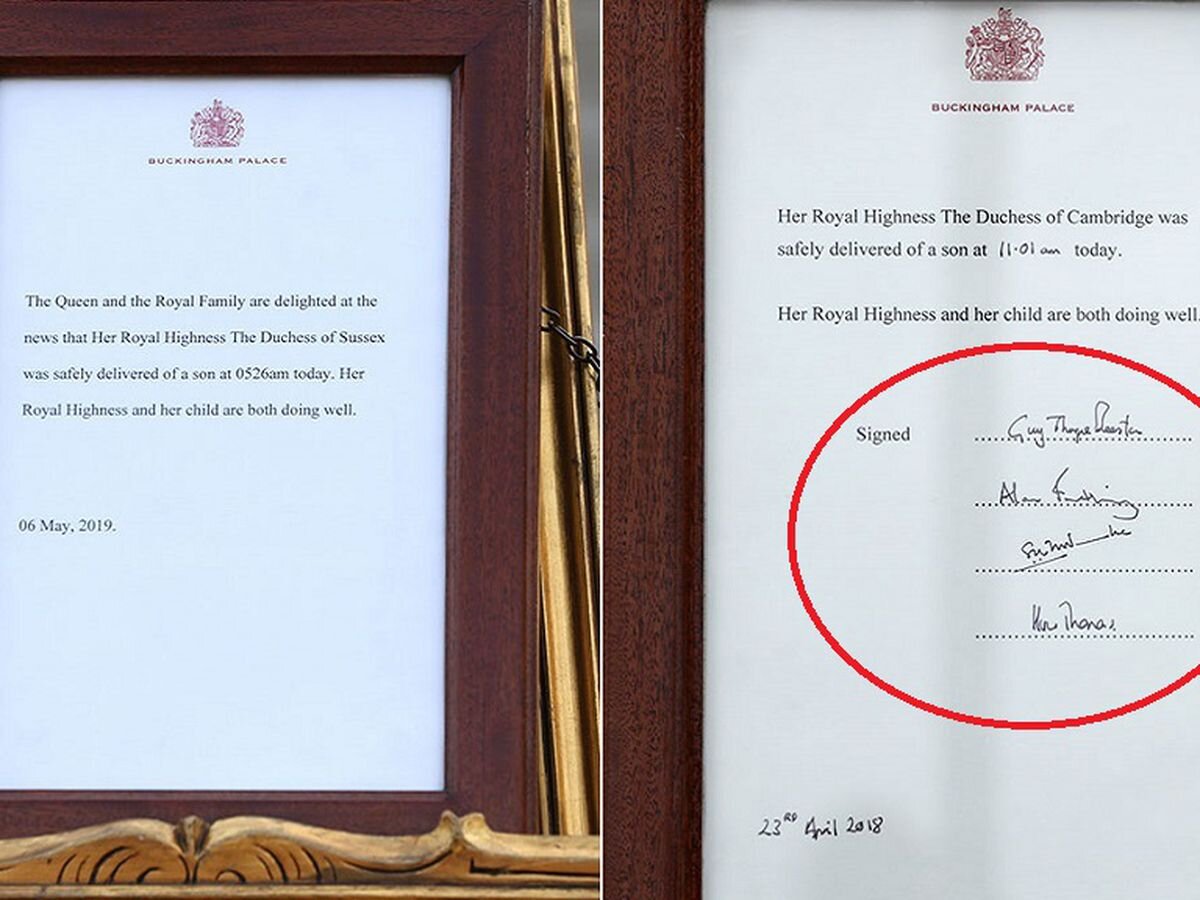 BUCKINGHAM PALACE
The Queen and the Royal Family are delighted at the
news that Her Royal Highness The Duchess of Sussex
was safely delivered of a son at 0526am today. Her
Royal Highness and her child are both doing well.
06 May, 2019.
BUCKINGHAM PALACE
Her Royal Highness The Duchess of Cambridge was
safely delivered of a son at 11·01 am today.
Her Royal Highness and her child are both doing well.
Signed
Guy Thorpe Beeston
Alan
Thomas
23RD April 2018